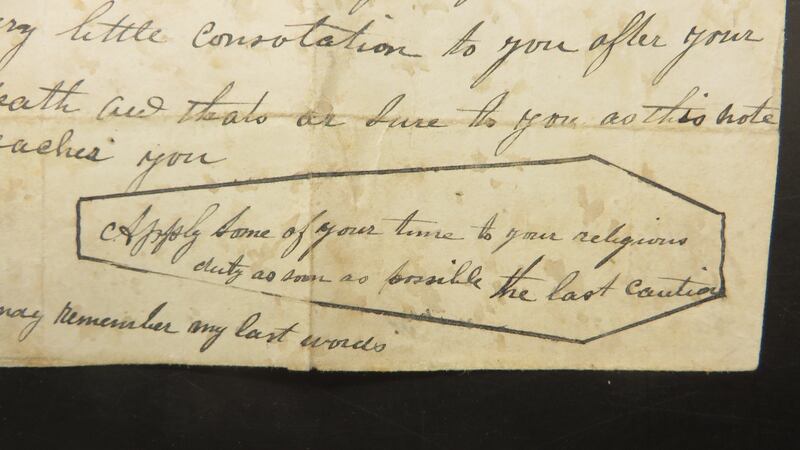 ry little consolation to you after your
eath and thats as sure to you as this note
eaches you
Apply Some of your time to your religious
duty as soon as possible the last caution
may remember my last words